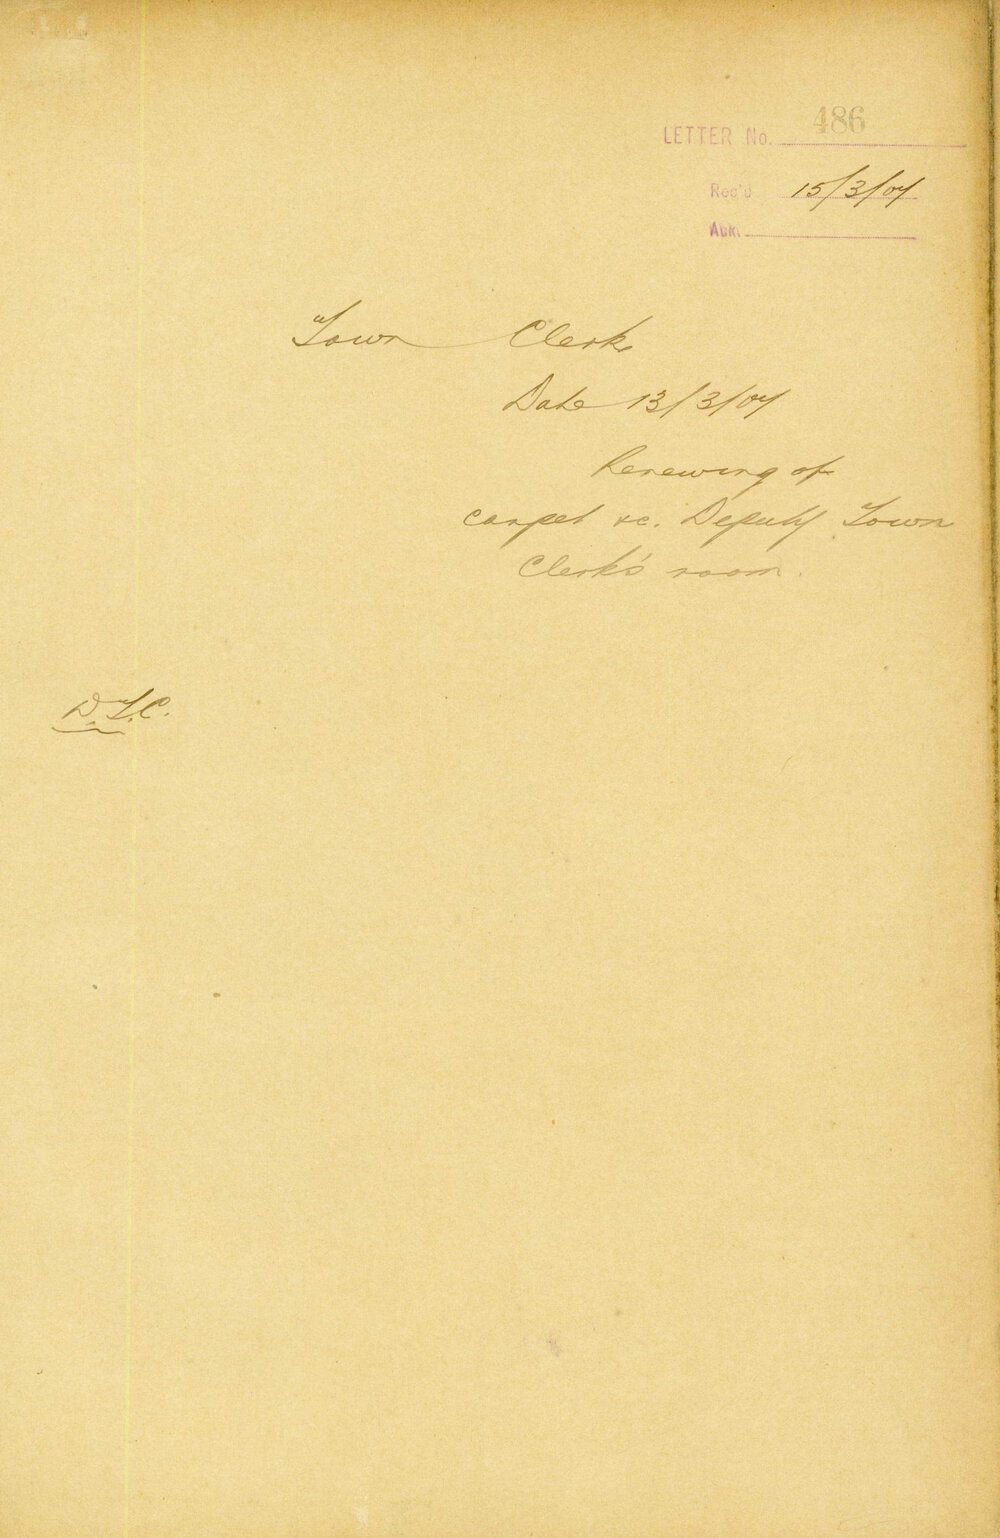 LETTER No. 486
Rec'd 15/3/07
Ack.
Town Clerk
Date 13/3/07
Renewing of
carpet &c. Deputy Town
Clerk's room.
D.T.C.